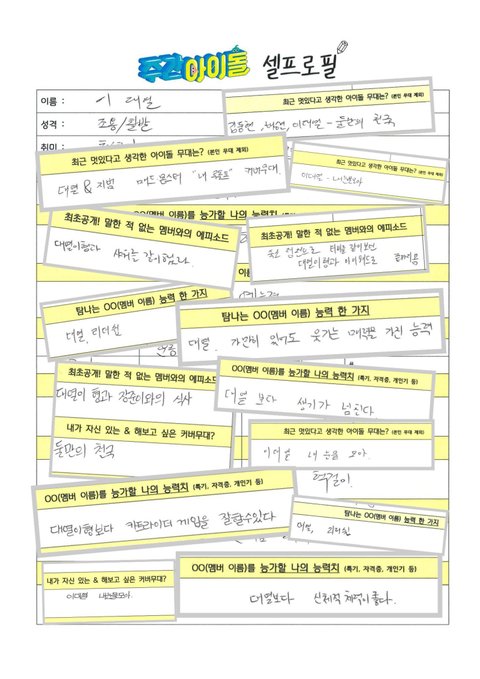 주간아이돌 셀프로필
이름 : 이 대열
성격 : 조용/활발
취미 :
최근 멋있다고 생각한 아이돌 무대는? (본인 무대 제외)
김동현, 이대열 - 둘만의 천국
최근 멋있다고 생각한 아이돌 무대는? (본인 무대 제외)
대열 & 지범 커버무대
최근 멋있다고 생각한 아이돌 무대는? (본인 무대 제외)
이대열 -
OO(멤버 이름)를 능가할 나의 능력치
최초공개! 말한 적 없는 멤버와의 에피소드
대열이형과 샤워를 같이했다.
최초공개! 말한 적 없는 멤버와의 에피소드
대열이형과
탐나는 OO(멤버 이름) 능력 한 가지
대열, 리더쉽
탐나는 OO(멤버 이름) 능력 한 가지
대열, 가만히 있어도 웃기는 매력을 가진 능력
최초공개! 말한 적 없는 멤버와의 에피소드
대열이 형과 장준이와의 식사
OO(멤버 이름)를 능가할 나의 능력치 (특기, 자격증, 개인기 등)
대열 보다 생기가 넘친다
내가 자신 있는 & 해보고 싶은 커버무대?
둘만의 천국
최근 멋있다고 생각한 아이돌 무대는? (본인 무대 제외)
이대열 내 손을 모아.
목걸이.
OO(멤버 이름)를 능가할 나의 능력치 (특기, 자격증, 개인기 등)
대열이형보다 카트라이더 게임을 잘할수있다
탐나는 OO(멤버 이름) 능력 한 가지
대열, 리더쉽
내가 자신 있는 & 해보고 싶은 커버무대?
이대열
OO(멤버 이름)를 능가할 나의 능력치 (특기, 자격증, 개인기 등)
대열보다 신체적 체력이 좋다.